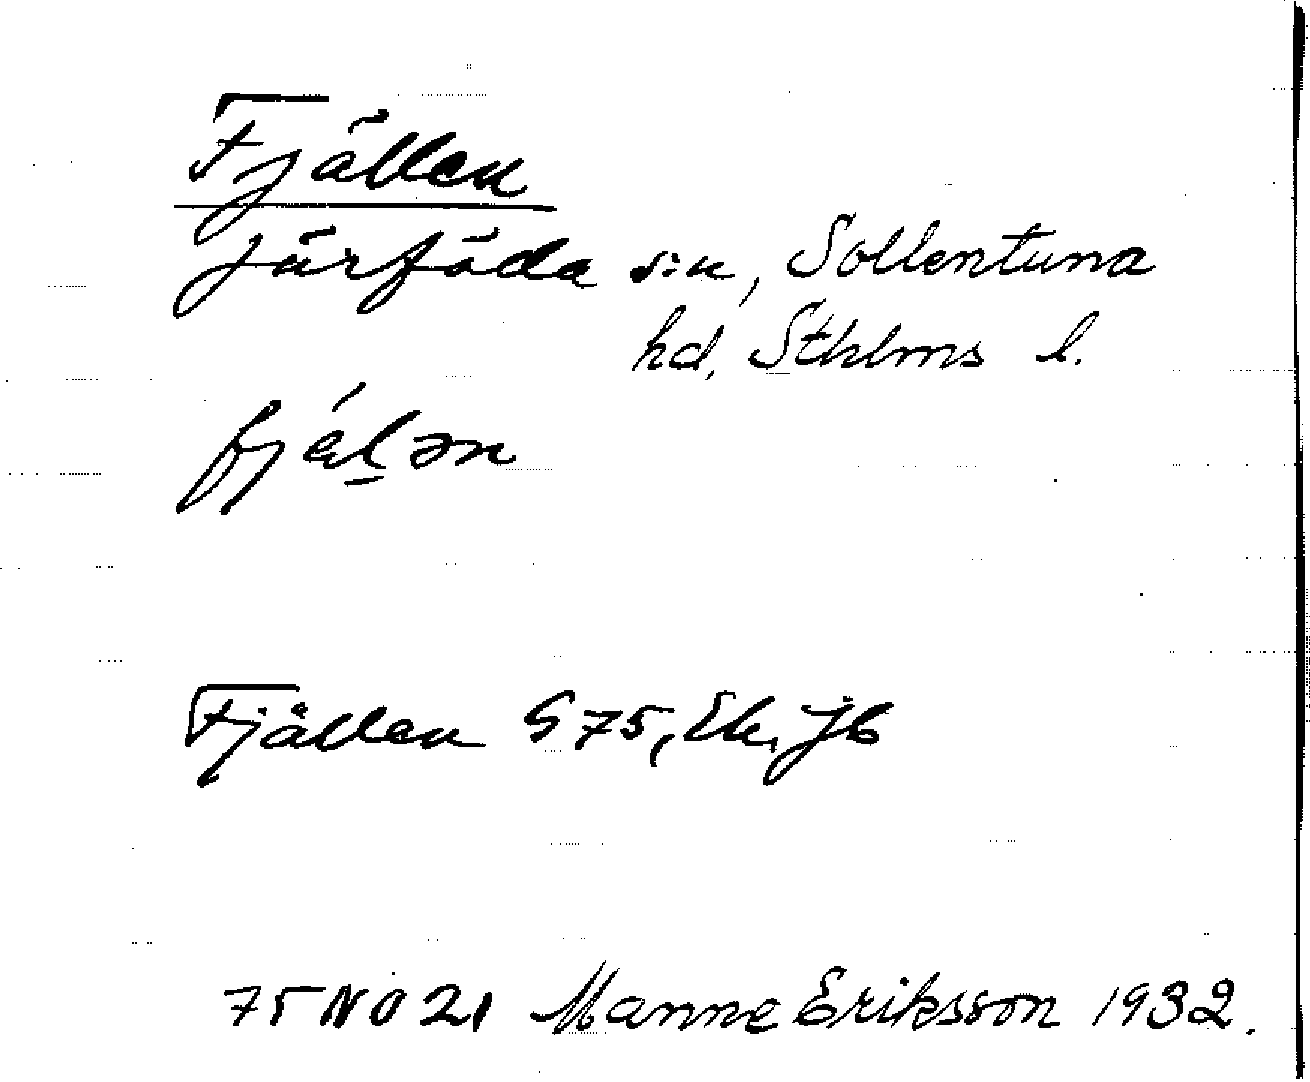 Fjällen
Järfäda s:n, Sollentuna
hd, Sthlms l.
fjä́l̲ən
Fjällen G 75, Ek, Jb
75 NO 21 Manne Eriksson 1932.